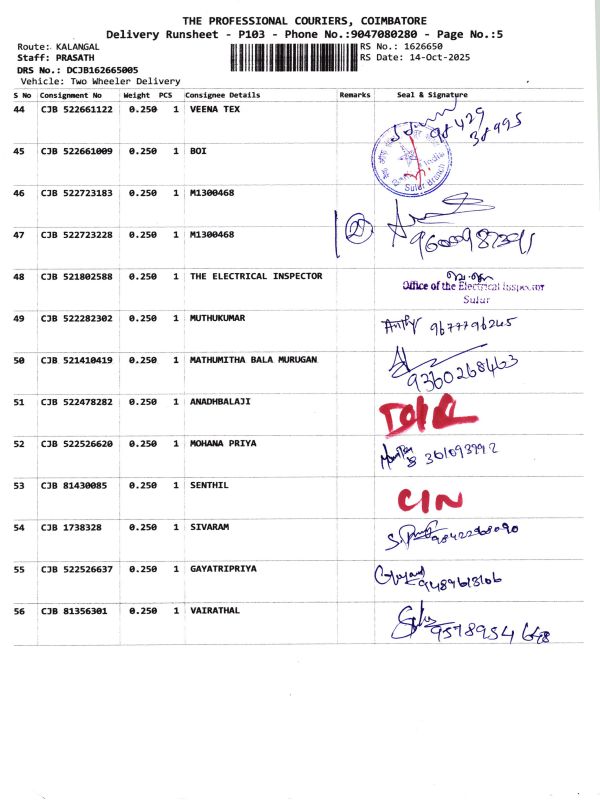 THE PROFESSIONAL COURIERS, COIMBATORE
Delivery Runsheet - P103 - Phone No.:9047080280 - Page No.:5
Route: KALANGAL RS No.: 1626650
Staff: PRASATH RS Date: 14-Oct-2025
DRS No.: DCJB162665005
Vehicle: Two Wheeler Delivery
S No Consignment No Weight PCS Consignee Details Remarks Seal & Signature
44 CJB 522661122 0.250 1 VEENA TEX 98429
38995
45 CJB 522661009 0.250 1 BOI
India
Sulur Branch
46 CJB 522723183 0.250 1 M1300468
47 CJB 522723228 0.250 1 M1300468
48 CJB 521802588 0.250 1 THE ELECTRICAL INSPECTOR
Office of the Electrical Inspector
Sulur
49 CJB 522282302 0.250 1 MUTHUKUMAR 9677796245
50 CJB 521410419 0.250 1 MATHUMITHA BALA MURUGAN
9360268463
51 CJB 522478282 0.250 1 ANADHBALAJI
52 CJB 522526620 0.250 1 MOHANA PRIYA
53 CJB 81430085 0.250 1 SENTHIL CIN
54 CJB 1738328 0.250 1 SIVARAM 9842268090
55 CJB 522526637 0.250 1 GAYATRIPRIYA
56 CJB 81356301 0.250 1 VAIRATHAL